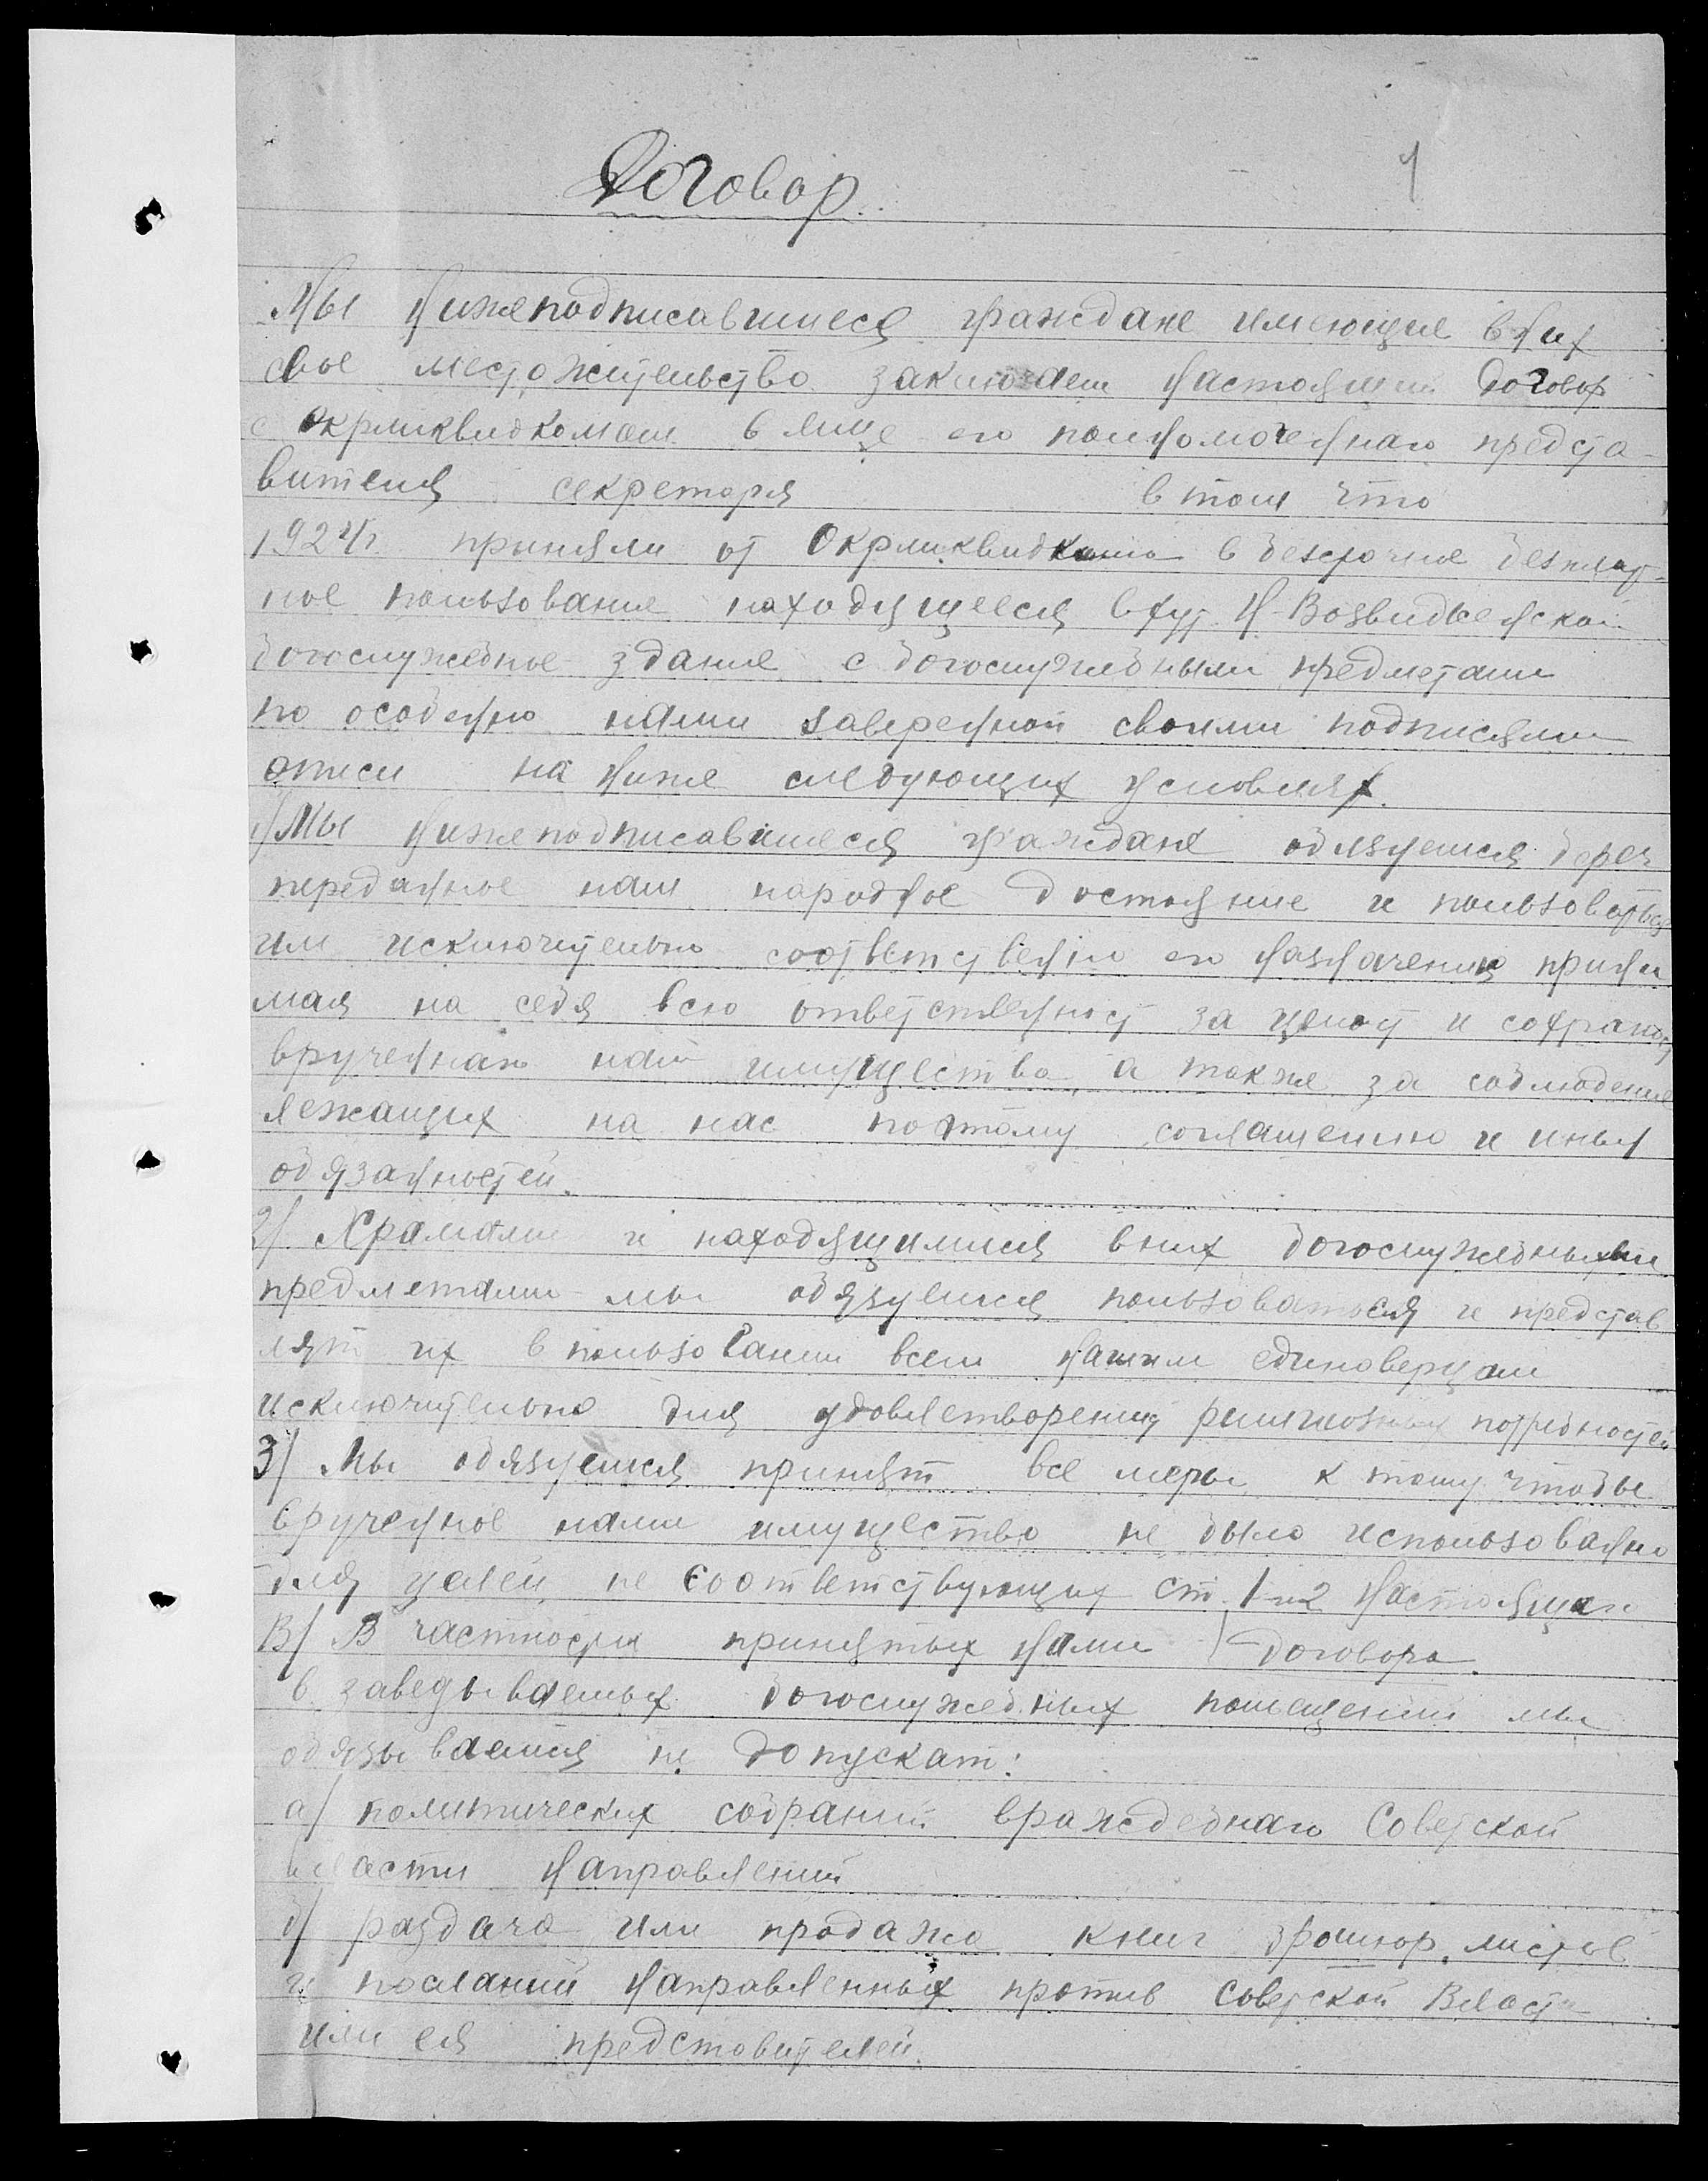 1
Договор.
Мы нижеподписавшиеся граждане имеющие в них
свое местожительство заключаем настоящий договор
с Окрликвидкомом в лице его полномоченнаго предста-
вителя секретаря в том что
1924г. приняли от Окрликвидкома в безсрочное безплат-
ное пользование находящееся в хут. Н-Воздвиженской
богослужебное здание с богослужебными предметами
по особенно нами заверенной своими подписями
описи на ниже следующих условиях.
1/ Мы нижеподписавшиеся граждане обязуемся береч
переданное нам народное достояние и пользоваться
им исключительно соответственно его назначения прини
мая на себя всю ответственност за целост и сохранност
врученнаго нам имущества, а также за соблюдение
лежащих на нас по этому соглашению и иных
обязанностей.
2/ Храмами и находящимися в них богослужебными
предметами мы обязуемся пользоваться и представ
лят их в пользовании всем нашим единоверцам
исключительно для удовлетворения религиозных потребностей
3/ Мы обязуемся принят все меры к тому чтобы
врученное нами имущество не было использованно
для целей не соответствующих ст. 1 и 2 настоящаго
договора.
В/ В частности принятых нами
в заведываемых богослужебных помещений мы
обязываемся не допускат:
а/ политических собраний враждебнаго Советской
власти направлений
б/ раздача или продажа книг брошюр, листов
и посланий направленных против Советской Власти
или ея представителей.